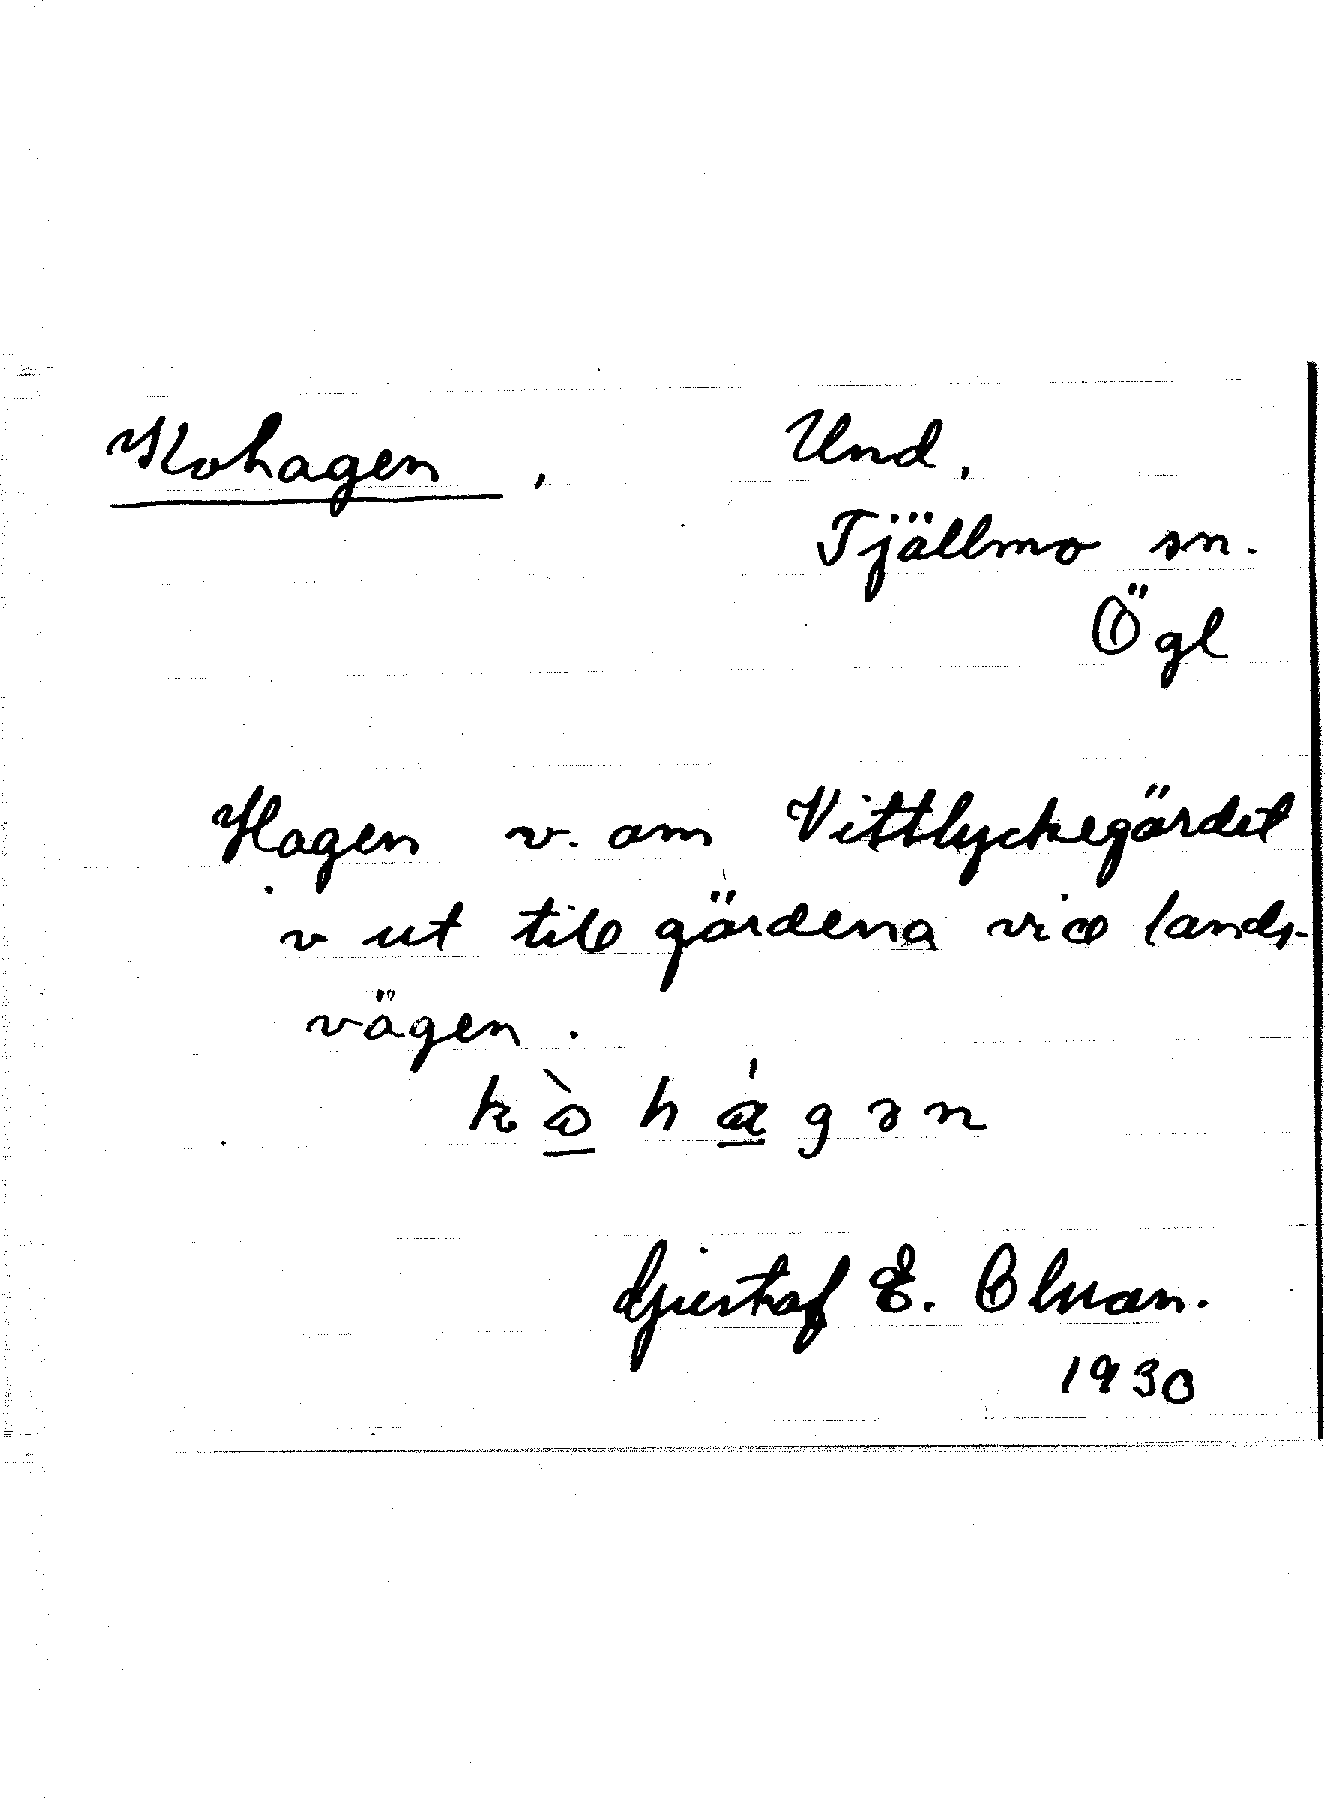 Kohagen, Und,
Tjällmo sn.
Ögl
Hagen v. om Vittlyckegärdet
v ut till gärdena vid lands-
vägen.
kòhágən
Gustaf E.
1930